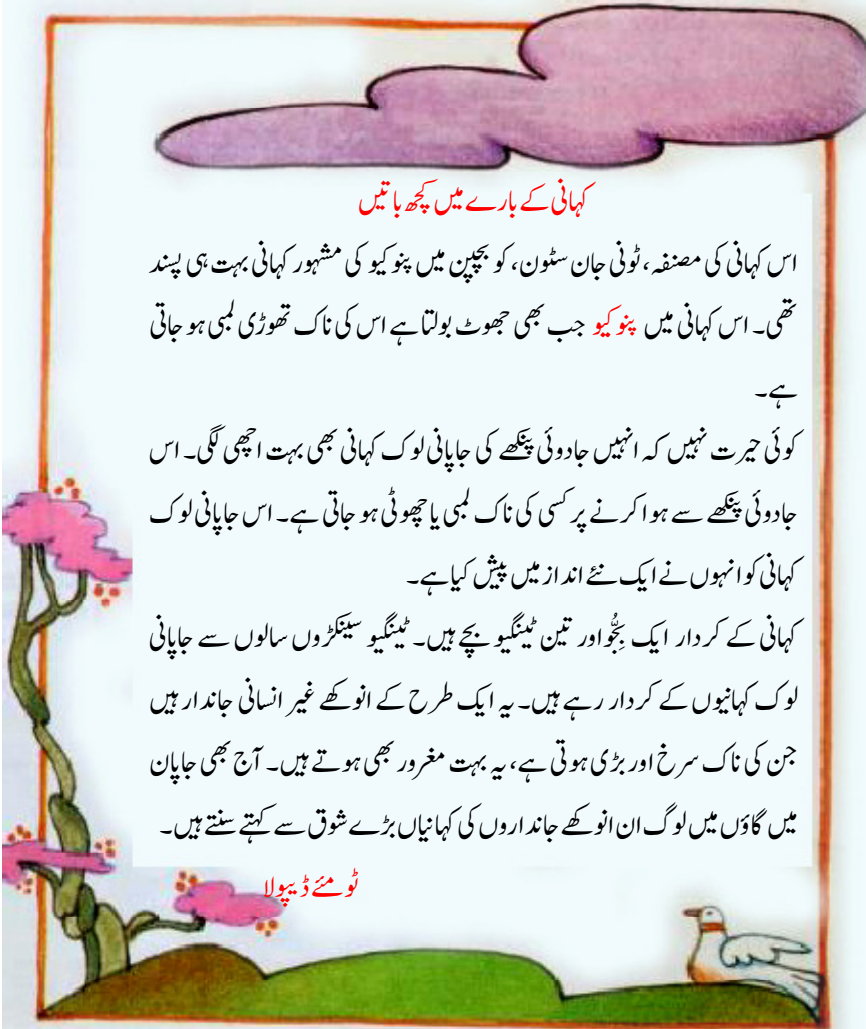 کہانی کے بارے میں کچھ باتیں
اس کہانی کی مصنفہ، ٹونی جان سٹون، کو بچپن میں پنوکیو کی مشہور کہانی بہت ہی پسند
تھی۔ اس کہانی میں پنوکیو جب بھی جھوٹ بولتا ہے اس کی ناک تھوڑی لمبی ہو جاتی
ہے۔
کوئی حیرت نہیں کہ انہیں جادوئی پنکھے کی جاپانی لوک کہانی بھی بہت اچھی لگی۔ اس
جادوئی پنکھے سے ہوا کرنے پر کسی کی ناک لمبی یا چھوٹی ہو جاتی ہے۔ اس جاپانی لوک
کہانی کو انہوں نے ایک نئے انداز میں پیش کیا ہے۔
کہانی کے کردار ایک بِجُّو اور تین ٹینگیو بچے ہیں۔ ٹینگیو سینکڑوں سالوں سے جاپانی
لوک کہانیوں کے کردار رہے ہیں۔ یہ ایک طرح کے انوکھے غیر انسانی جاندار ہیں
جن کی ناک سرخ اور بڑی ہوتی ہے، یہ بہت مغرور بھی ہوتے ہیں۔ آج بھی جاپان
میں گاؤں میں لوگ ان انوکھے جانداروں کی کہانیاں بڑے شوق سے کہتے سنتے ہیں۔
ٹومئے ڈیپولا